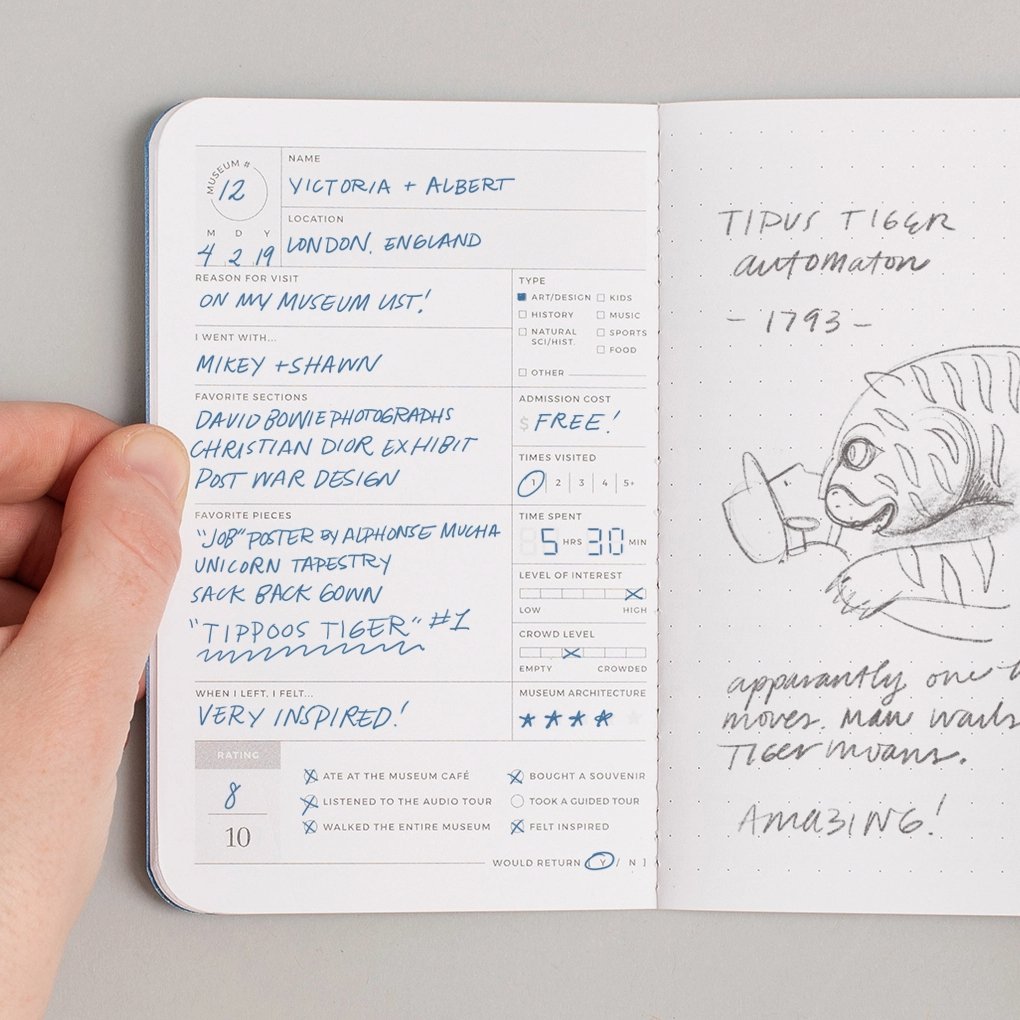 MUSEUM #
12
M D Y
4 2 19
NAME
VICTORIA + ALBERT
LOCATION
LONDON, ENGLAND
REASON FOR VISIT
ON MY MUSEUM LIST!
I WENT WITH...
MIKEY + SHAWN
FAVORITE SECTIONS
DAVID BOWIE PHOTOGRAPHS
CHRISTIAN DIOR EXHIBIT
POST WAR DESIGN
FAVORITE PIECES
"JOB" POSTER BY ALPHONSE MUCHA
UNICORN TAPESTRY
SACK BACK GOWN
"TIPPOOS TIGER" #1
WHEN I LEFT, I FELT...
VERY INSPIRED!
TYPE
ART/DESIGN KIDS
HISTORY MUSIC
NATURAL SCI/HIST. SPORTS
FOOD
OTHER
ADMISSION COST
$ FREE!
TIMES VISITED
1 2 3 4 5+
TIME SPENT
5 HRS 30 MIN
LEVEL OF INTEREST
LOW HIGH
CROWD LEVEL
EMPTY CROWDED
MUSEUM ARCHITECTURE
RATING
8
10
ATE AT THE MUSEUM CAFÉ BOUGHT A SOUVENIR
LISTENED TO THE AUDIO TOUR TOOK A GUIDED TOUR
WALKED THE ENTIRE MUSEUM FELT INSPIRED
WOULD RETURN [ Y / N ]
TIPUS TIGER
automaton
- 1793 -
apparantly one
moves. Man wails
Tiger moans.
AMAZING!